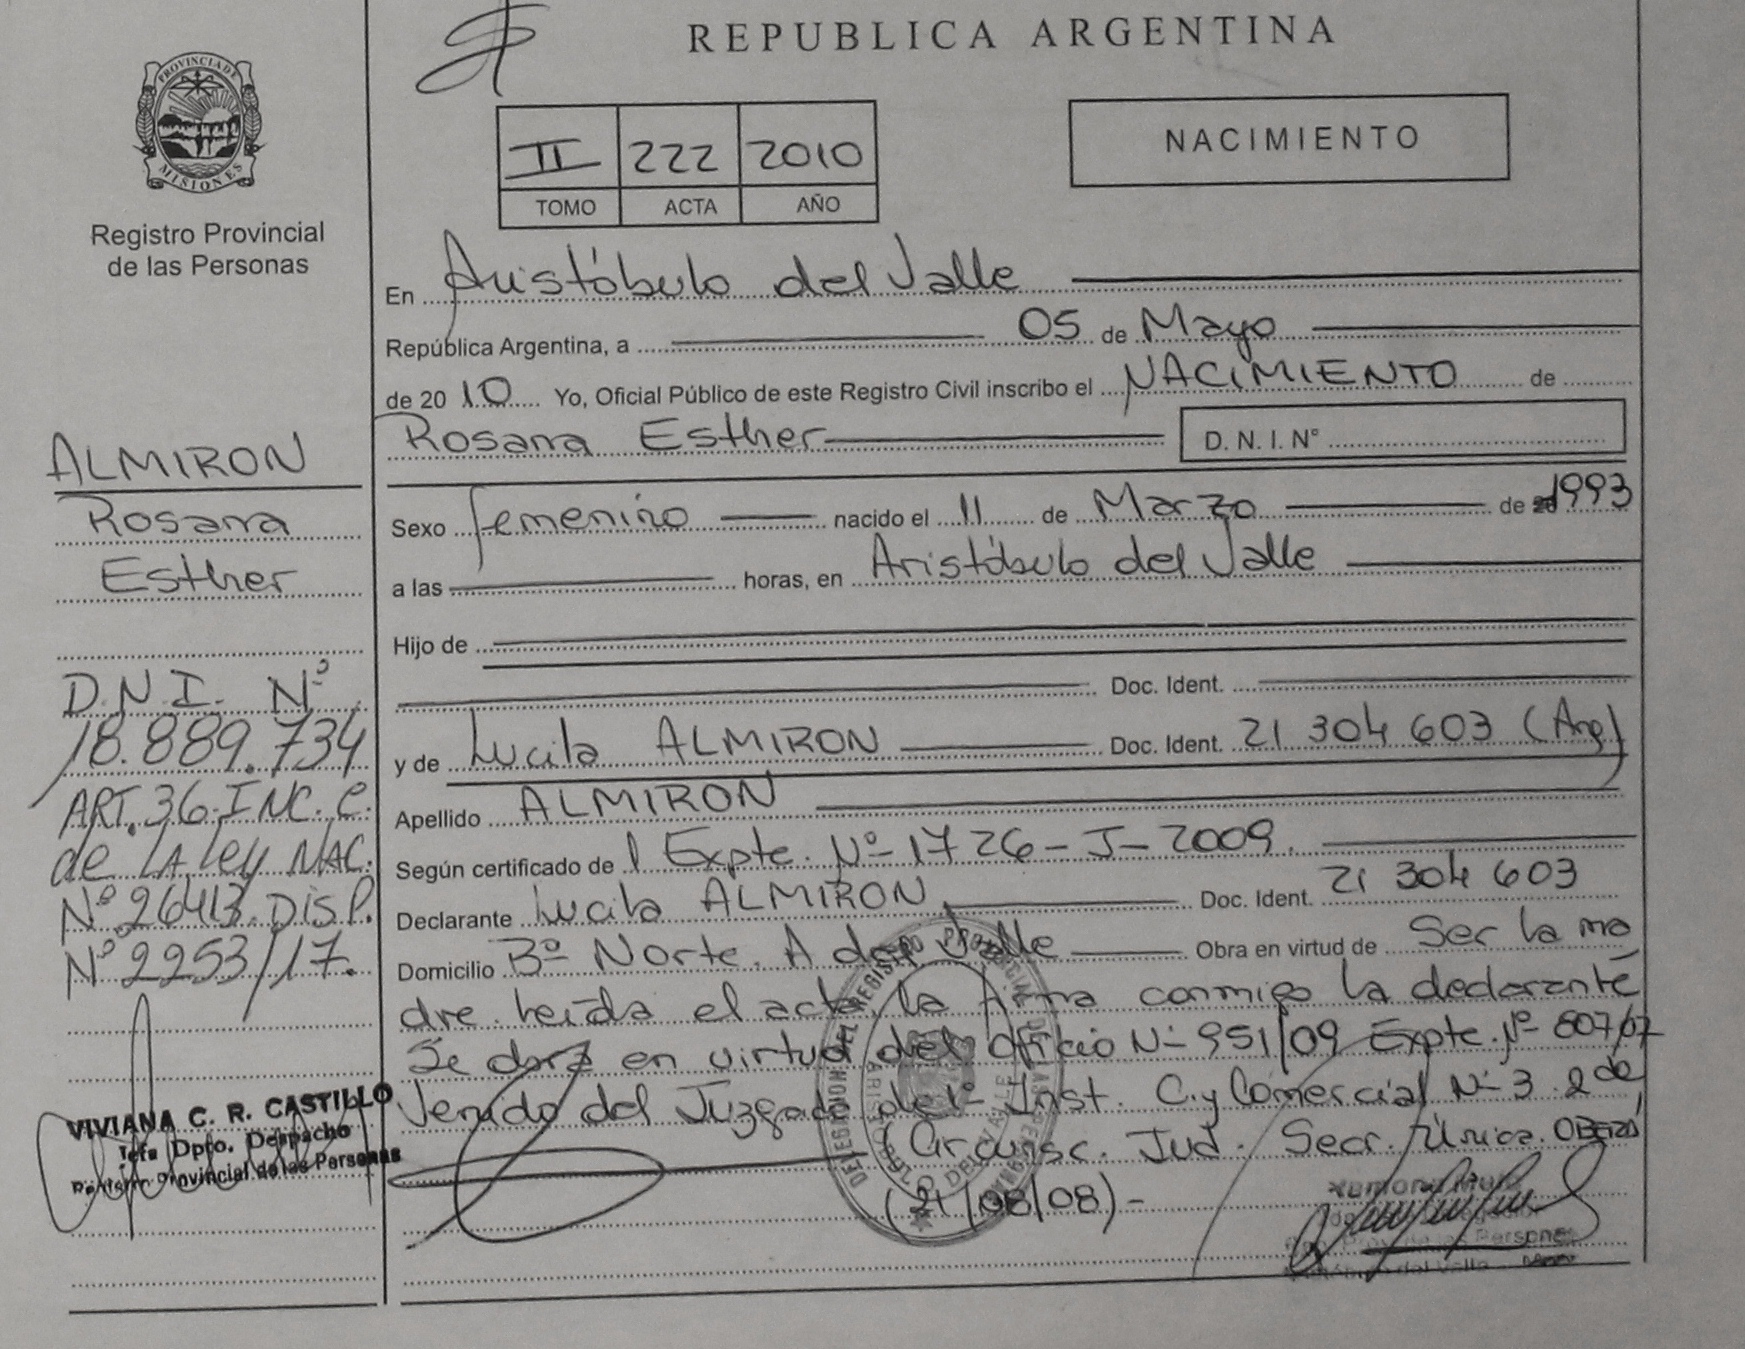 REPUBLICA ARGENTINA
PROVINCIA DE
MISIONES
Registro Provincial
de las Personas
II 222 2010
TOMO ACTA AÑO
NACIMIENTO
En Aristóbulo del Valle
República Argentina, a 05 de Mayo
de 2010 Yo, Oficial Público de este Registro Civil inscribo el NACIMIENTO de
Rosana Esther D. N. I. N°
Sexo femenino nacido el 11 de Marzo de 1993
a las horas, en Aristóbulo del Valle
Hijo de
Doc. Ident.
y de Lucila ALMIRON Doc. Ident. 21 304 603 (Arg)
Apellido ALMIRON
Según certificado de l Expte. Nº 1726-J-2009.
Declarante Lucila ALMIRON Doc. Ident. 21 304 603
Domicilio Bº Norte. A del Valle Obra en virtud de Ser la ma
dre. leída el acta, la firma conmigo la declarante
Se en virtud del Oficio Nº 951/09 Expte. Nº 807/07
venido del Juzgado de 1º Inst. C. y Comercial Nº 3 2da
Circunsc. Jud. Secr. Única. OBERÁ
(21/08/08)-
ALMIRON
Rosana
Esther
D.N.I. Nº
18.889.734
ART. 36. INC. C.
de LA Ley NAC.
Nº 26413. DISP.
Nº 2253/17.
VIVIANA C. R. CASTILLO
Jefa Dpto. Despacho
Provincial de las Personas
DELEGACION DEL REGISTRO PROVINCIAL DE LAS PERSONAS
ARISTOBULO DEL VALLE
Personas
del Valle